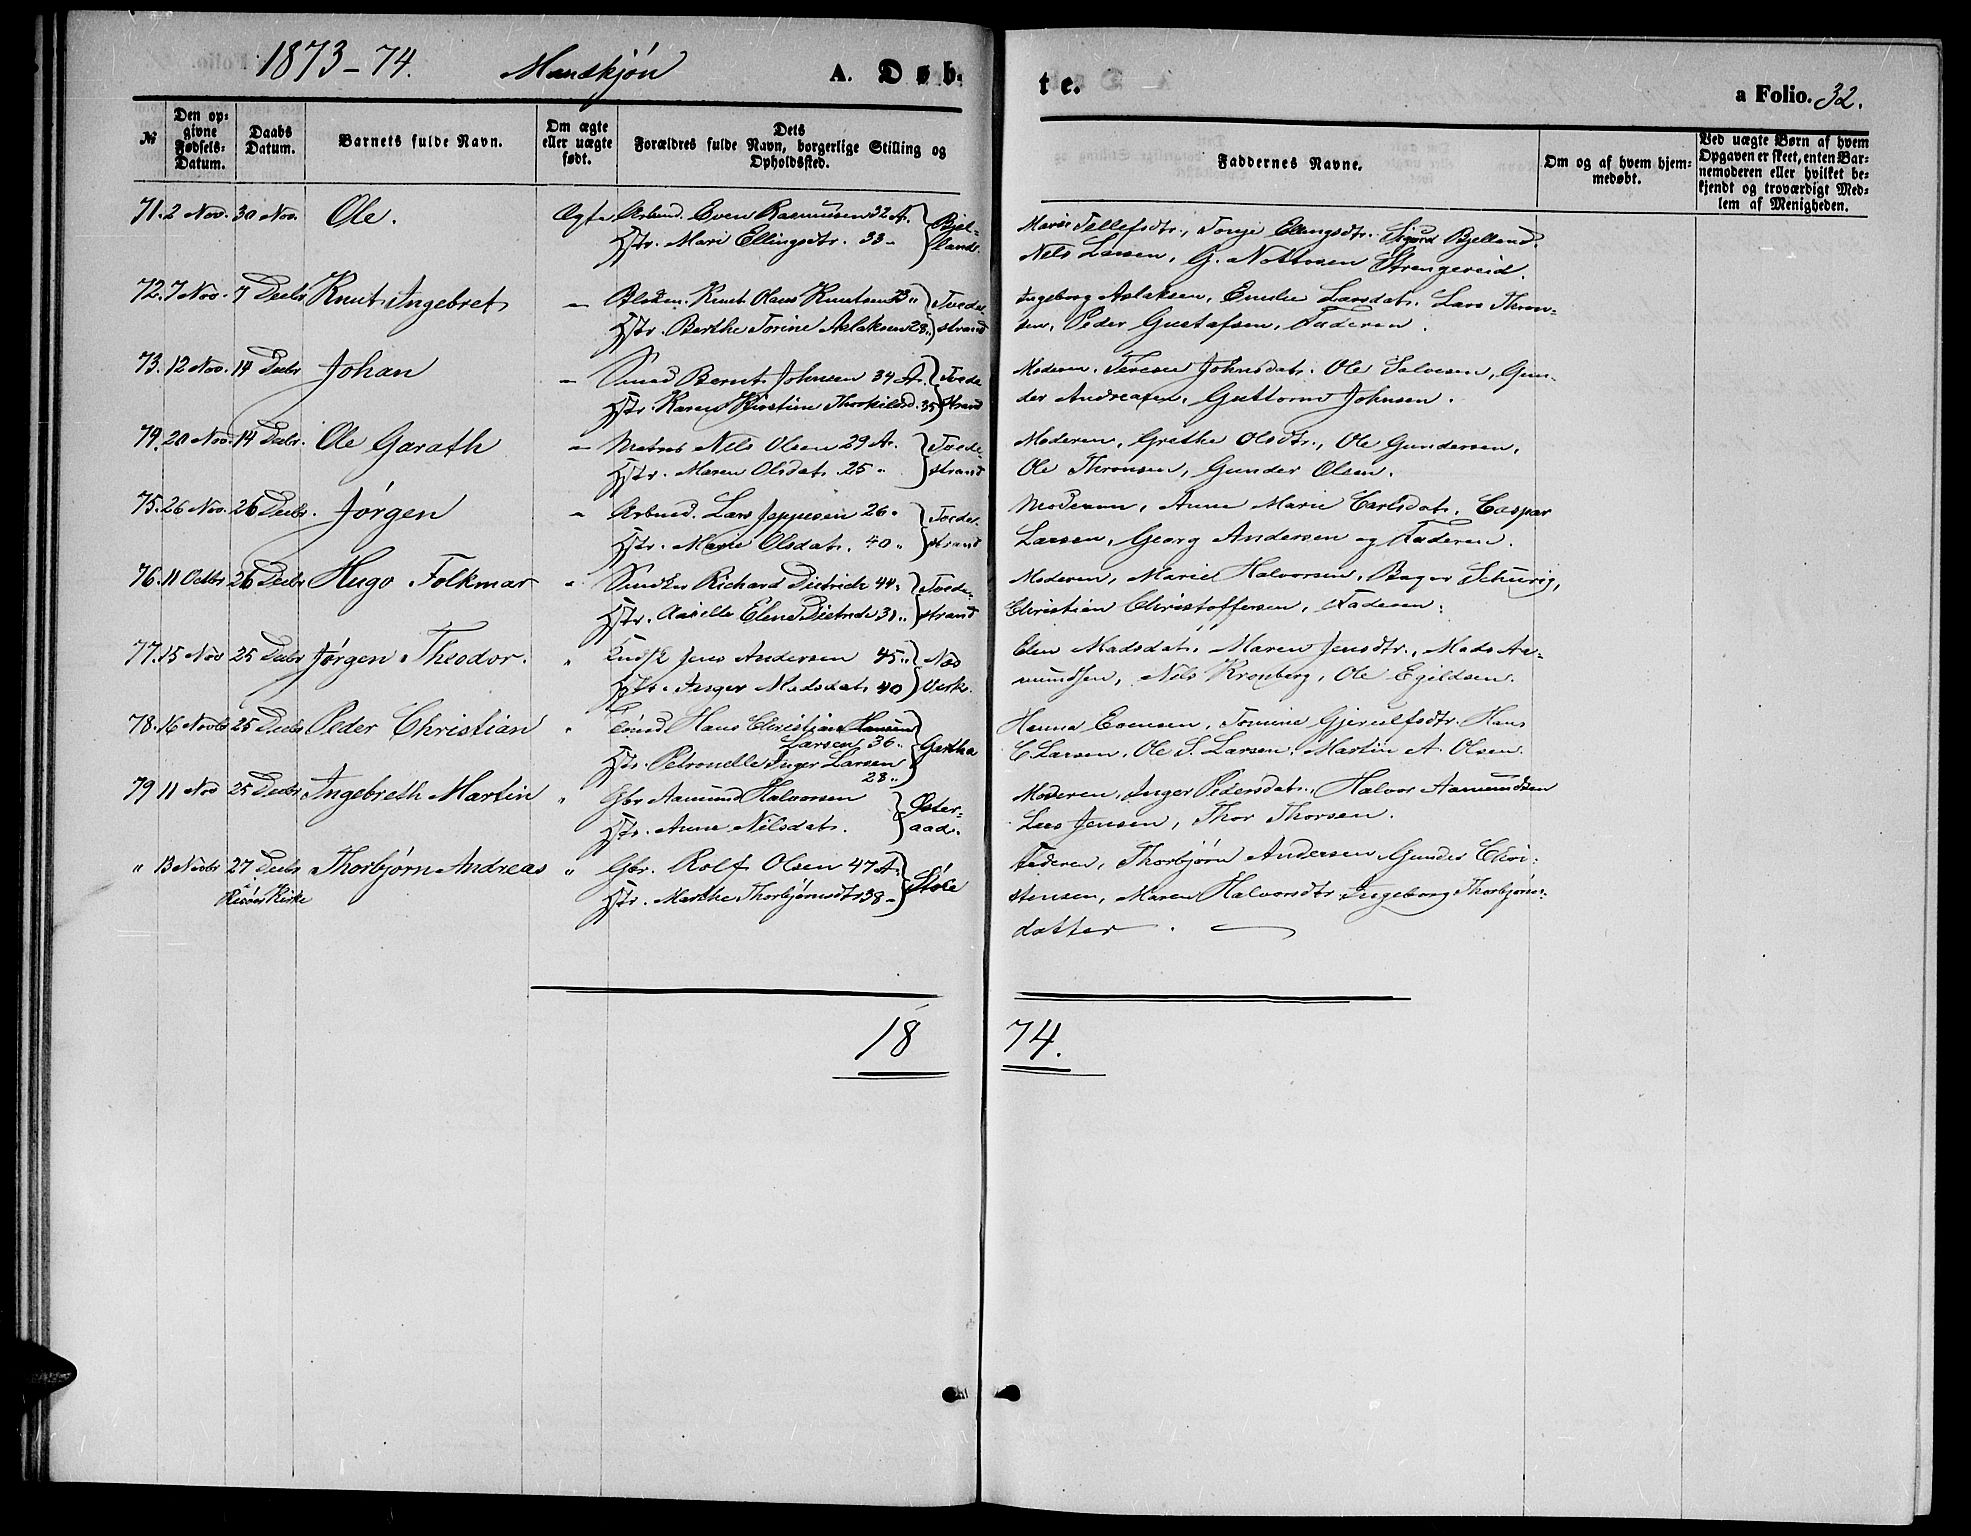 1873-74. Mandkjøn A. Døb-
te.
a Folio. 32.
№
Den op-
givne
Fødsels-
Datum.
Daabs
Datum.
Barnets fulde Navn.
Om ægte
eller uægte
født.
Dets
Forældres fulde Navn, borgerlige Stilling og
Opholdssted.
Faddernes Navne.
Om og af hvem hjem-
medøbt.
Ved uægte Børn af hvem
Opgaven er skeet, enten Bar-
nemoderen eller hvilket be-
kjendt og troværdigt Med-
lem af Menigheden.
71. 2 Nov. 30 Nov. Ole. Ægte Arbmd. Even Rasmusen 32 A. Bjel-
Hstr. Mari Ellingsdtr. 33 - land.
Marie Tellefsdtr., Tonje Ellingsdtr. Sigurd Bjelland.
Nels Larsen, G. Nottosen Strengereid.
72. 7 Nov. 7 Decbr Knut Ingebret - Knut Olaus Knutsen Tvede-
Hstr. Berthe Torine Aslaksen 28 " strand
Ingeborg Aslaksen, Emilie Larsdat. Lars Thron-
sen, Peder Gustafsen, Faderen.
73. 12 Nov. 14 Decbr Johan - Smed Bernt Johnsen 34 A. Tvede
Hstr. Karen Kirstine Thorkilsd. 35 strand
Moderen. Terese Johnsdat. Ole Salvesen, Gun-
der Andreasen, Guttorm Johnsen.
74. 20 Nov. 14 Decbr. Ole Garath - Matros Nils Olsen 29 A. Tvede-
Hstr. Maren Olsdat. 25 " strand
Moderen, Grethe Olsdtr., Ole Gundersen,
Ole Thronsen, Gunder Olsen.
75. 26 Nov. 26 Decbr. Jørgen - Arbmd. Lars Jeppesen 26 " Tvede-
Hstr. Marie Olsdat. 40 " strand
Moderen, Anne Marie Carlsdat. Caspar
Larsen, Georg Andersen og Faderen.
76. 11 Octbr 26 Decbr Hugo Folkmar " Snedker Richard Dietrich 44 " Tvede-
Hstr. Elene Dietrich " strand
Moderen, Marie Halvorsen, Bager Schurig,
Christian Christoffersen, Faderen.
77. 15 Nov 25 Decbr Jørgen Theodor. " Jens Andersen 45 " Næs
Hstr. Inger Madsdat. 40 Værk.
Elen Madsdat. Maren Jensdtr., Mads Aa-
mundsen, Nils Kronberg, Ole Egildsen.
78. 16 Novb 25 Decbr Peder Christian " Hans Christian Hansen
Larsen 36 "
Hstr. Petronelle Inger Larsen Gartha
28 "
Hanna Evensen, Tomine Gjerulfsdtr. Hans
C Larsen, Ole S. Larsen, Martin A. Olsen.
79 11 Nov 25 Decbr Ingebreth Martin " Gbr Aamund Halvorsen Øster-
Hstr. Anne Nilsdat. aad.
Moderen, Inger Pedersdat., Halvor Aamundsen
Lars Jensen, Thor Thorsen.
" 13 Novbr 27 Decbr Thorbjørn Andreas " Gbr. Rolf Olsen 47 A.
Risøer Kirke Hstr. Marthe Thorbjørnsdtr 38 - Støle
Faderen, Thorbjørn Andersen Gunder Chri-
stensen, Maren Halvorsdtr Ingeborg Thorbjørns-
datter.
18 74.